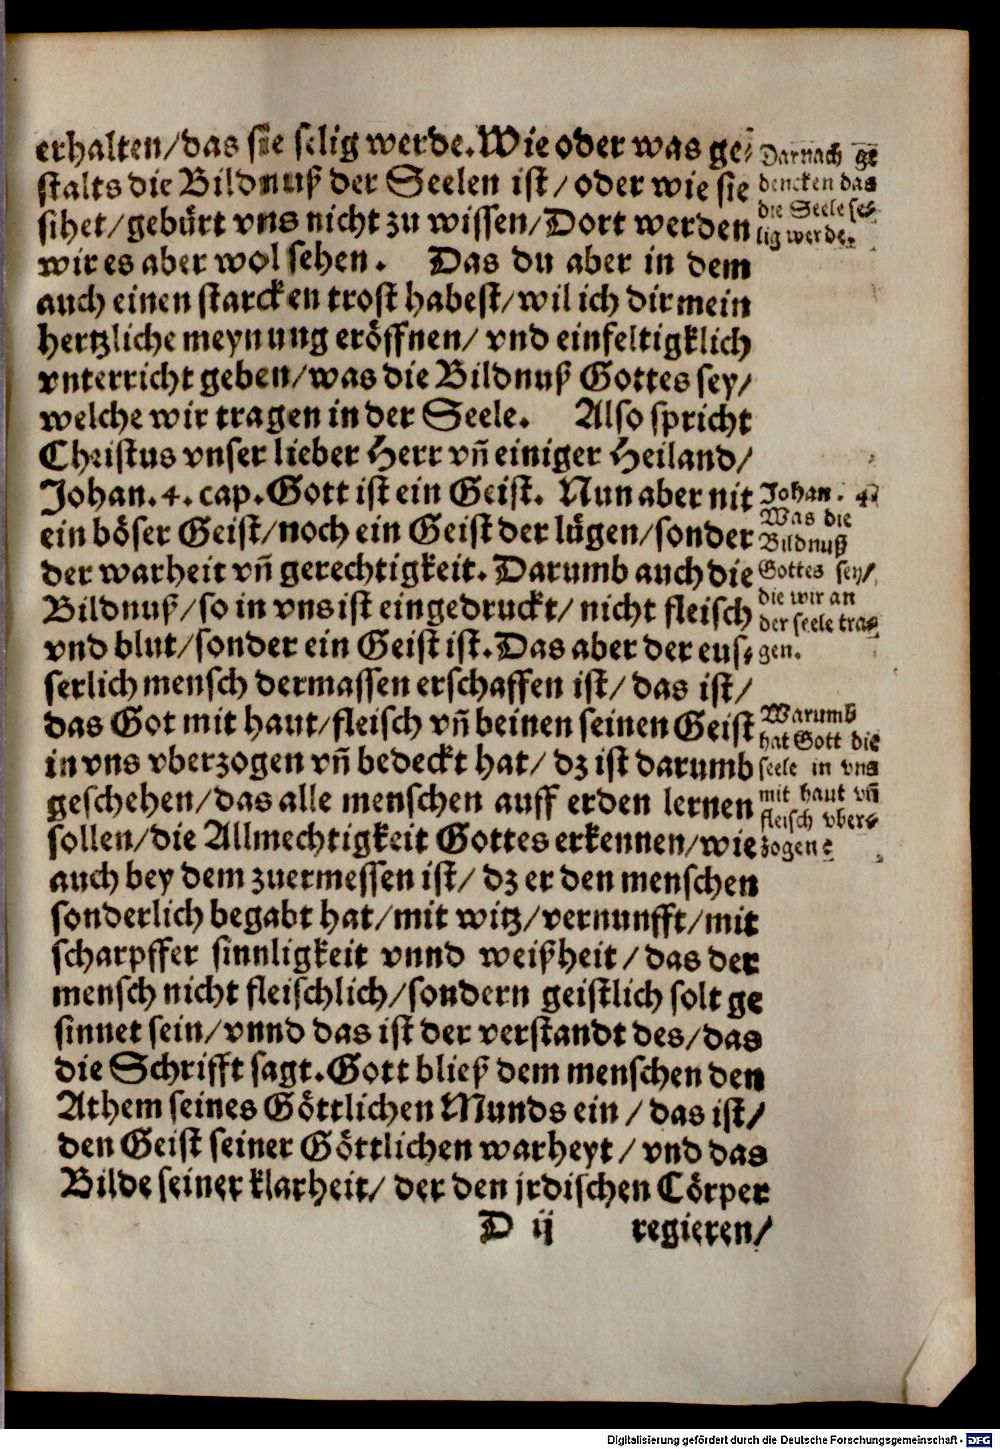 erhalten/das sie selig werde.Wie oder was ge⸗
stalts die Bildnuß der Seelen ist/oder wie sie
sihet/gebürt vns nicht zu wissen/Dort werden
wir es aber wol sehen. Das du aber in dem
auch einen starcken trost habest/wil ich dir mein
hertzliche meynung eröffnen/ vnd einfeltigklich
vnterricht geben/was die Bildnuß Gottes sey/
welche wir tragen in der Seele. Also spricht
Christus vnser lieber Herr vñ einiger Heiland/
Johan.4.cap.Gott ist ein Geist. Nun aber nit
ein böser Geist/noch ein Geist der lügen/sonder
der warheit vñ gerechtigkeit. Darumb auch die
Bildnuß/so in vns ist eingedruckt/ nicht fleisch
vnd blut/sonder ein Geist ist.Das aber der eus⸗
serlich mensch dermassen erschaffen ist/ das ist/
das Got mit haut/fleisch vñ beinen seinen Geist
in vns vberzogen vñ bedeckt hat/ dz ist darumb
geschehen/das alle menschen auff erden lernen
sollen/die Allmechtigkeit Gottes erkennen/wie
auch bey dem zuermessen ist/ dz er den menschen
sonderlich begabt hat/mit witz/vernunfft/mit
scharpffer sinnligkeit vnnd weißheit/das der
mensch nicht fleischlich/sondern geistlich solt ge
sinnet sein/vnnd das ist der verstandt des/das
die Schrifft sagt.Gott bließ dem menschen den
Athem seines Göttlichen Munds ein/das ist/
den Geist seiner Göttlichen warheyt/vnd das
Bilde seiner klarheit/ der den jrdischen Cörper
D ij regieren/
Darnach ge
dencken das
die Seele se⸗
lig werde.
Johan. 4.
Was die
Bildnuß
Gottes sey/
die wir an
der seele tra⸗
gen.
Warumb
hat Gott die
seele in vns
mit haut vñ
fleisch vber⸗
zogen?
Digitalisierung gefördert durch die Deutsche Forschungsgemeinschaft - DFG